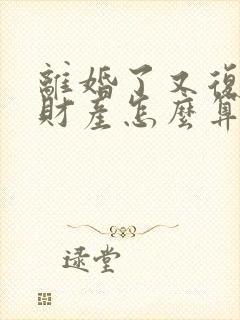 離婚了又復
財產怎麼算
逯堂